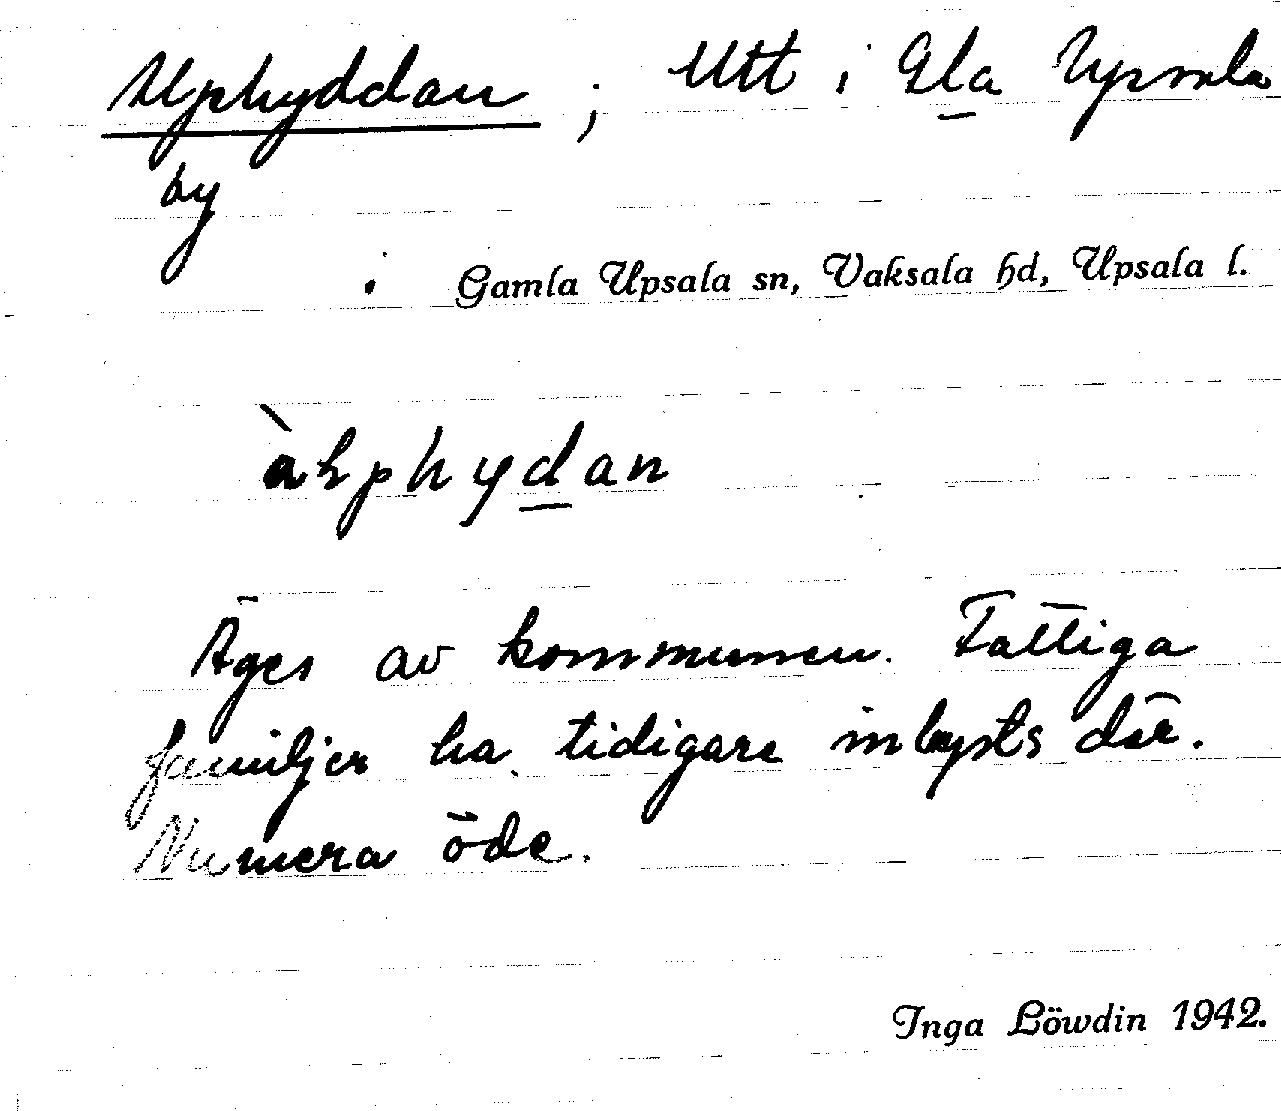 Uphyddan ; Utt i Gla Upsala
by
Gamla Upsala sn, Vaksala hd, Upsala l.
Äges av kommunen. Fattiga
familjer ha tidigare inhysts där.
Numera öde.
Inga Löwdin 1942.